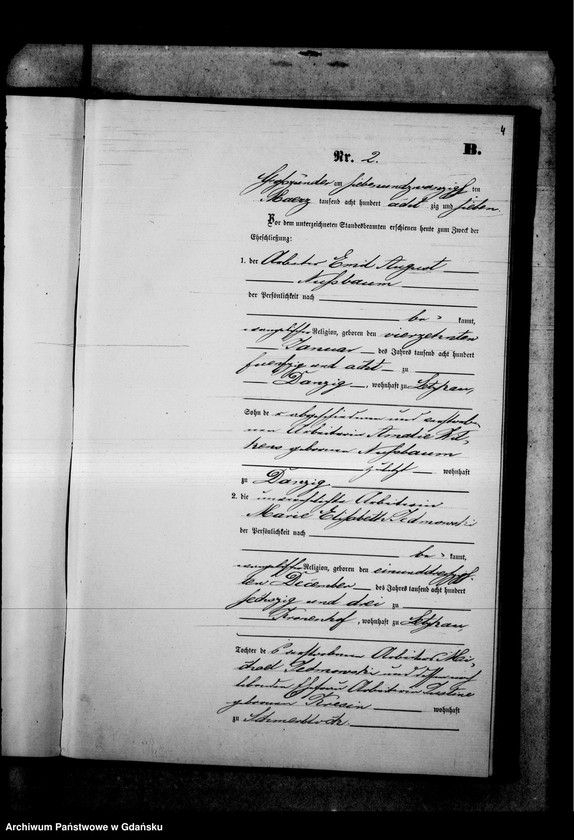 4
B.
Nr. 2.
am siebenundzwanzigsten
Maerz tausend acht hundert achtzig und sieben
Vor dem unterzeichneten Standesbeamten erschienen heute zum Zweck der
Eheschließung:
1. der Arbeiter Emil August
Nußbaum
der Persönlichkeit nach
be kannt,
evangelischer Religion, geboren den vierzehnten
Januar des Jahres tausend acht hundert
fuenfzig und acht zu
Danzig, wohnhaft zu Letzkau,
Sohn der abgeschiedenen und verstorbe-
nen Arbeiterin Amalie
geborenen Nußbaum
zuletzt wohnhaft
zu Danzig
2. die unverehelichte Arbeiterin
Marie Elisabeth
der Persönlichkeit nach
be kannt,
evangelischer Religion, geboren den einunddreißig-
ten December des Jahres tausend acht hundert
sechszig und drei zu
Kronenhof, wohnhaft zu Letzkau,
Tochter des verstorbenen Arbeiters Mi-
und dessen noch
lebenden Ehefrau Arbeiterin
geborenen wohnhaft
zu Schmerblock
Archiwum Państwowe w Gdańsku